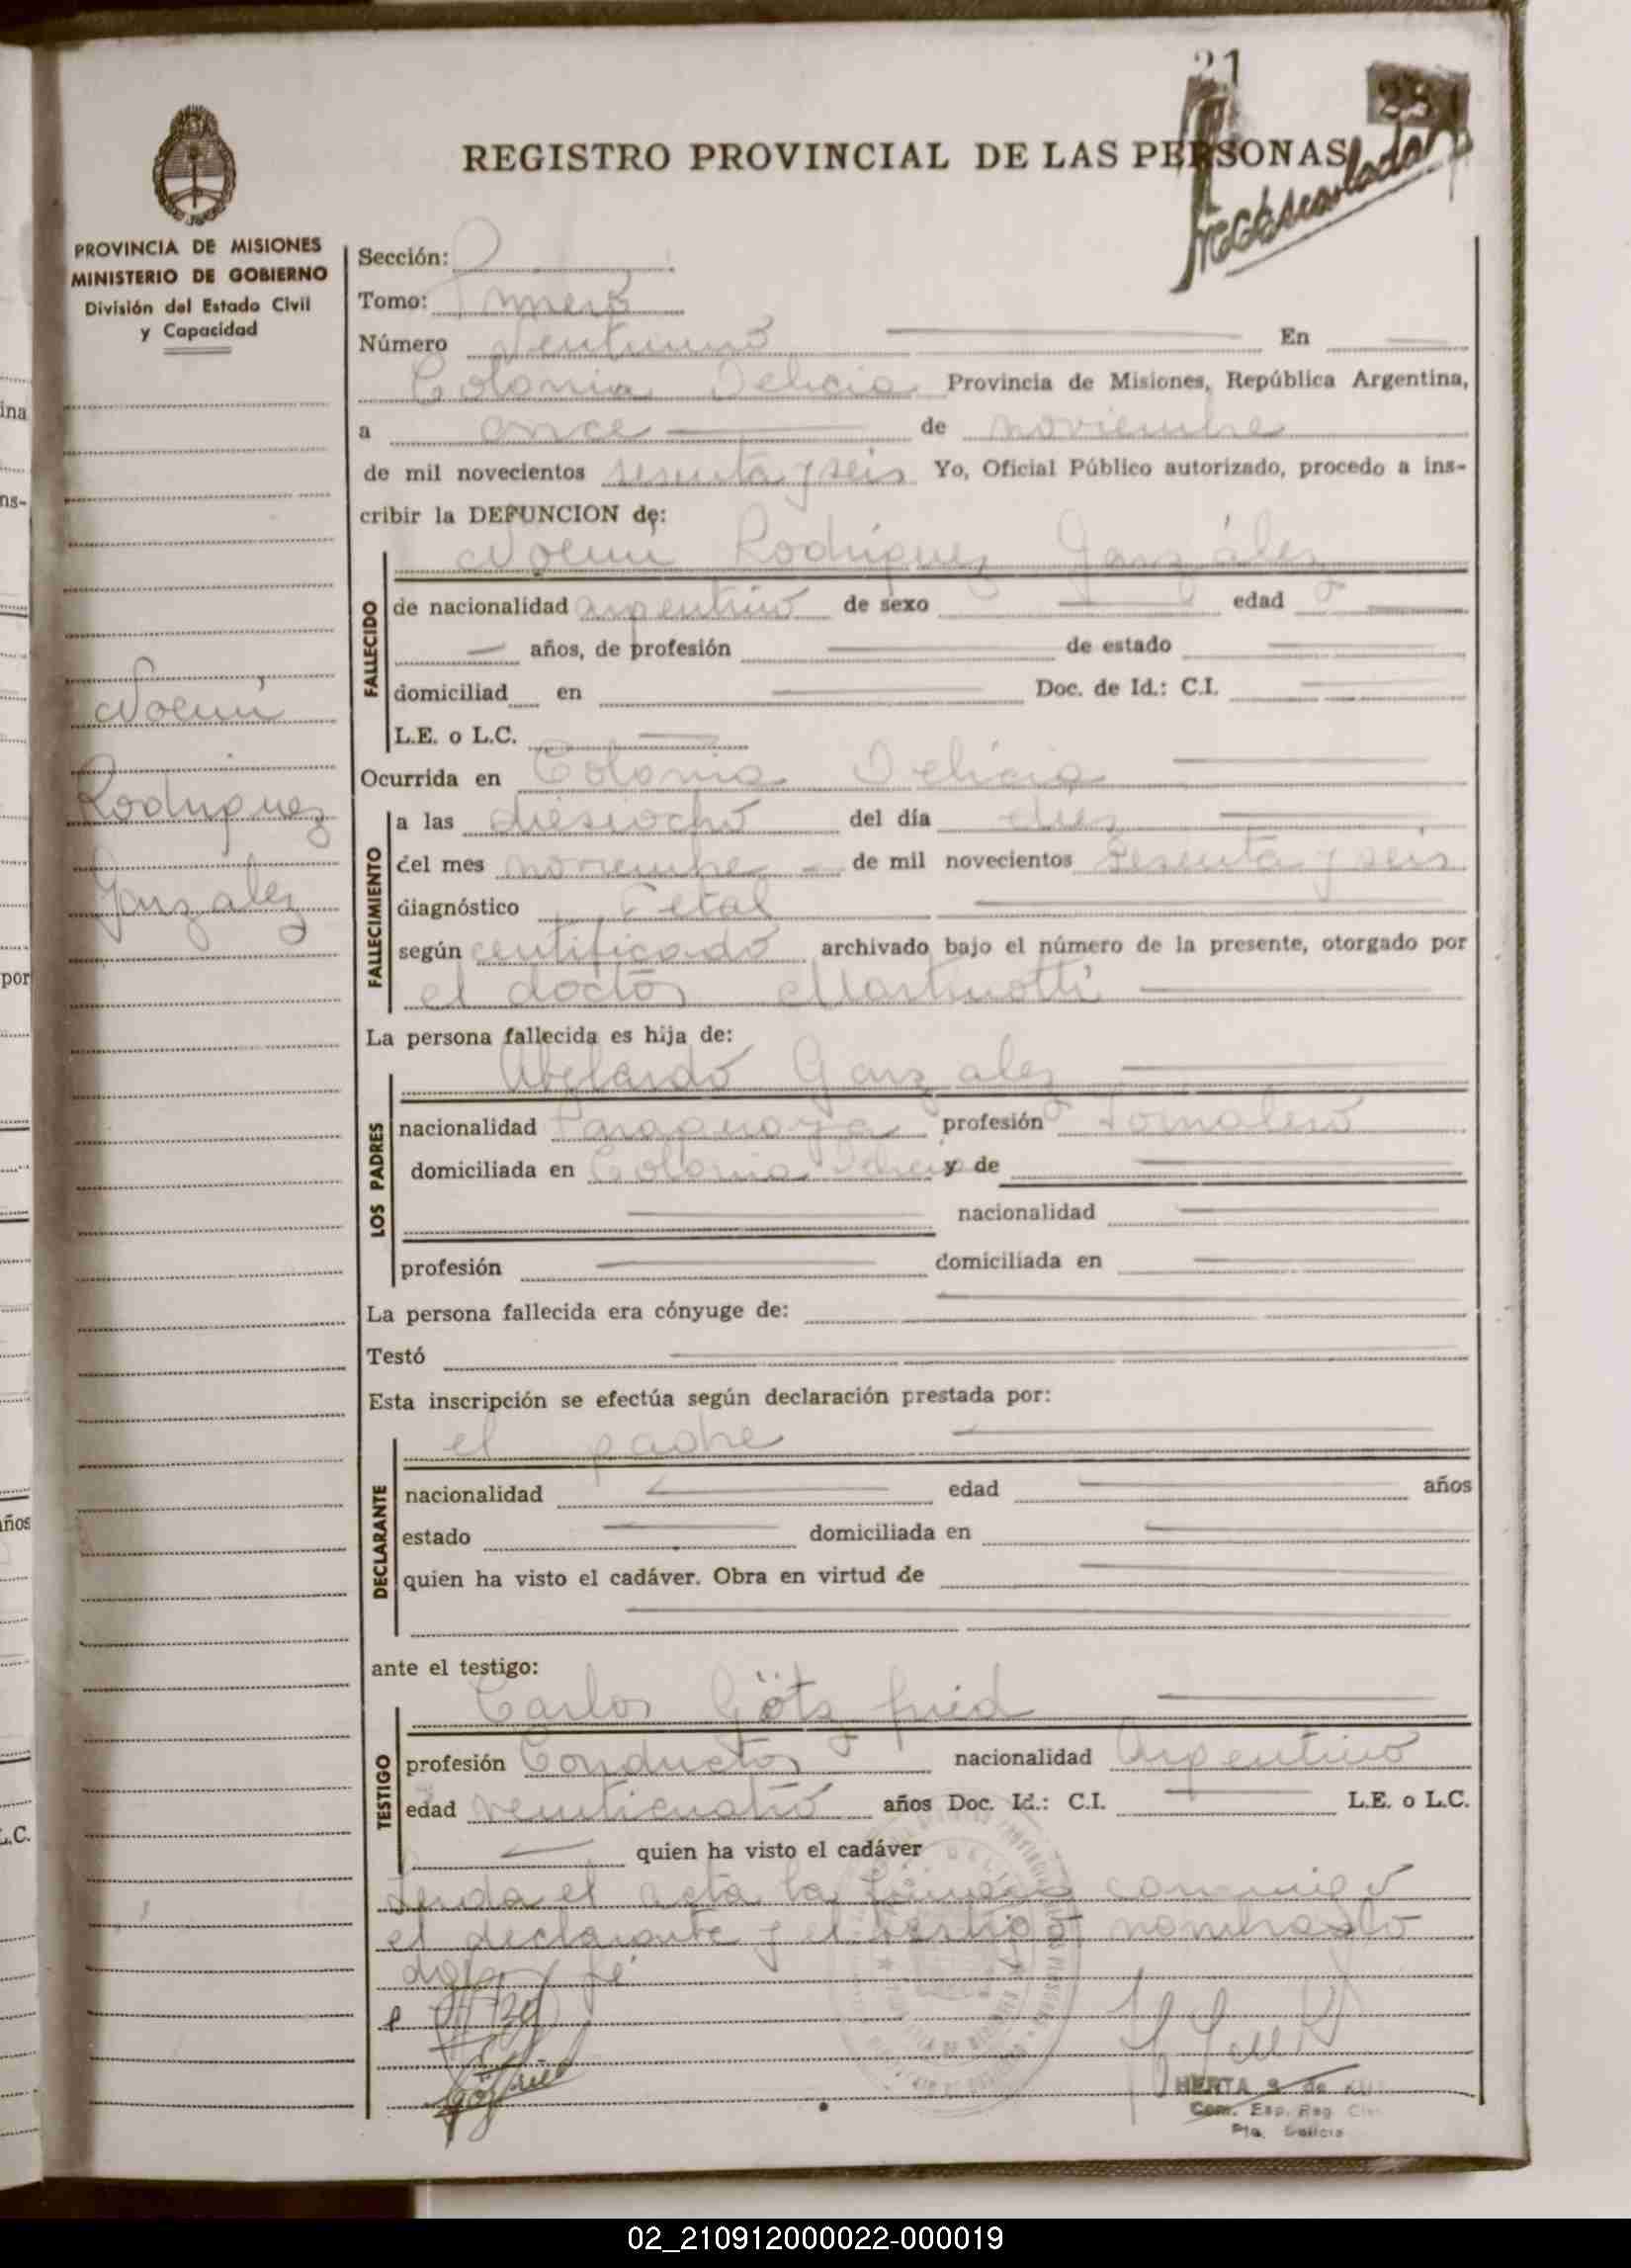 21
REGISTRO PROVINCIAL DE LAS PERSONAS
PROVINCIA DE MISIONES
MINISTERIO DE GOBIERNO
División del Estado Civil
y Capacidad
Noemi
Rodriguez
Gonzalez
Sección:
Tomo: Primero
Número Ventiuno En
Colonia Delicia Provincia de Misiones, República Argentina,
a once de noviembre
de mil novecientos sesenta y seis Yo, Oficial Público autorizado, procedo a ins-
cribir la DEFUNCION de:
Noemi Rodriguez Gonzalez
FALLECIDO
de nacionalidad argentino de sexo edad
años, de profesión de estado
domiciliad en Doc. de Id.: C.I.
L.E. o L.C.
Ocurrida en Colonia Delicia
FALLECIMIENTO
a las diesiocho del día diez
del mes noviembre de mil novecientos sesenta y seis
diagnóstico Fetal
según certificado archivado bajo el número de la presente, otorgado por
el doctor Martinotti
La persona fallecida es hija de:
LOS PADRES
Abelardo Gonzalez
nacionalidad Paraguaya profesión Jornalero
domiciliada en Colonia Delicia y de
nacionalidad
profesión domiciliada en
La persona fallecida era cónyuge de:
Testó
Esta inscripción se efectúa según declaración prestada por:
DECLARANTE
el padre
nacionalidad edad años
estado domiciliada en
quien ha visto el cadáver. Obra en virtud de
ante el testigo:
TESTIGO
Carlos Götz fried
profesión Conductor nacionalidad Argentino
edad veinticuatro años Doc. Id.: C.I. L.E. o L.C.
quien ha visto el cadáver
Leida el acta la firman conmigo
el declarante y el testigo nombrado
doy fé
HERTA S. de
Com. Esp. Reg. Civ
Pto. Delicia
02_210912000022-000019